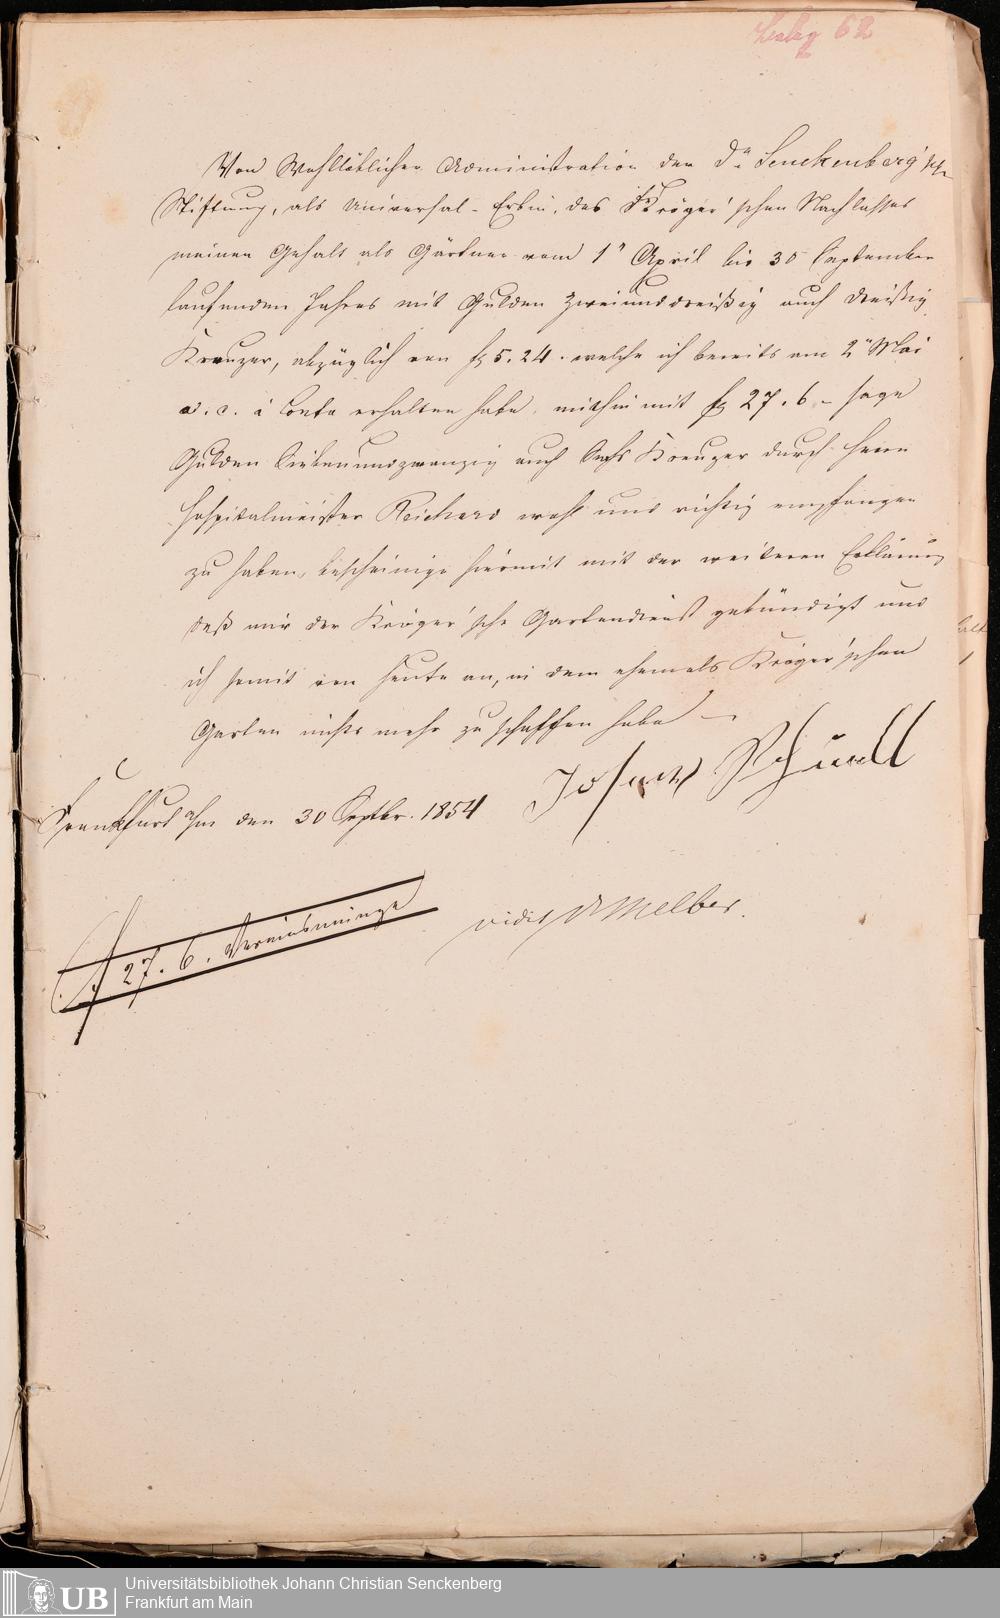 Beleg 62
Von Wohllöblicher Administration der Dr. Senckenberg'sch.
Stiftung, als Universal-Erbin, des Kröger'schen Nachlasses
meinen Gehalt als Gärtner vom 1n April bis 30 September
laufenden Jahres mit Gulden Zweiunddreißig auch dreissig
Kreuzer, abzüglich von f 5.24. welche ich bereits am 2n Mai
a. c. à Conto erhalten habe, mithin mit f 27.6 – sage
Gulden Siebenundzwanzig auch Sechs Kreuzer durch Herrn
Hospitalmeister Reichard wohl und richtig empfangen
zu haben, bescheinige hiermit mit der weiteren Erklärung
daß mir der Kröger'sche Gartendienst gekündigt und
ich somit von heute an, in dem ehemals Kröger'schen
Garten nichts mehr zu schaffen habe –
Frankfurt a/m den 30 Septbr. 1854
Johann
f 27.6. Vereinsmünze
vidit Dr Melber.
Universitätsbibliothek Johann Christian Senckenberg
Frankfurt am Main
UB